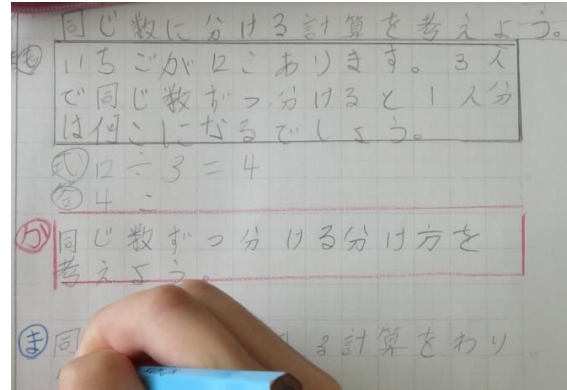 同じ数に分ける計算を考えよう。
も いちごが12こあります。3人
で同じ数ずつ分けると1人分
は何こになるでしょう。
式 12÷3=4
答 4こ
が 同じ数ずつ分ける分け方を
考えよう。
ま 同 る計算をわり